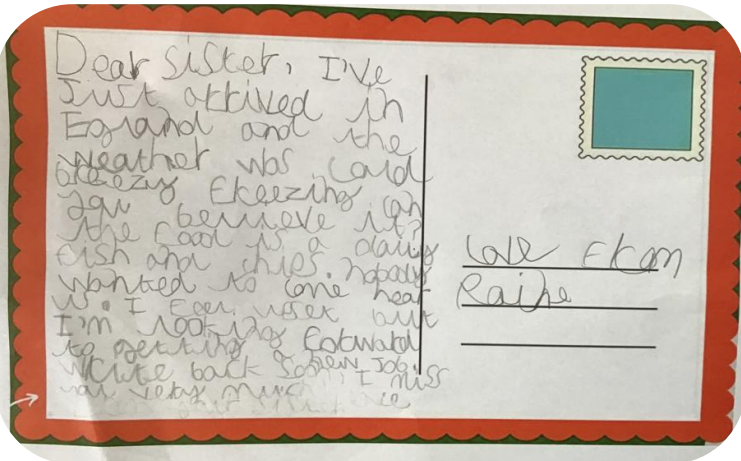 Dear sister, I've
Just arrived in
England and the
weather was cold
breezy freezing can
you believe it?
the food is a daily
fish and chips. nobody
wanted to come near
us. I feel upset but
I'm looking forward
to getting a new job.
write back soon I miss
you very much
Love From
Raine